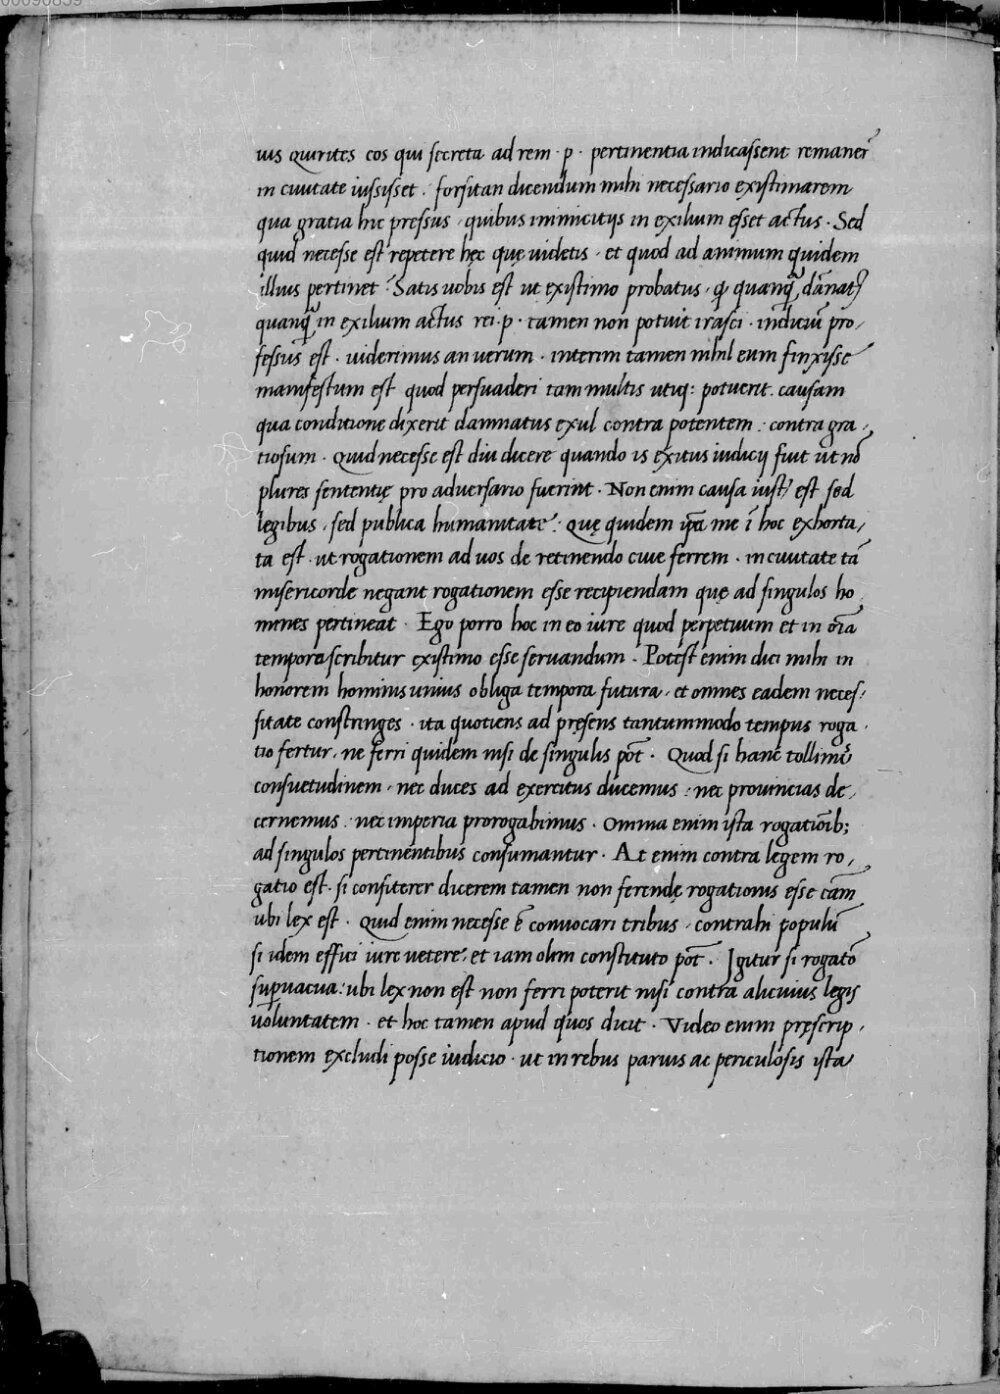 00090859
ius Quirites eos qui secreta ad rem · p · pertinentia indicassent remanerī
in ciuitate iussisset . forsitan dicendum mihi necessario existimarem
qua gratia hic pressus , quibus inimicitijs in exilium esset actus · Sed
quid necesse est repetere hęc quę uidetis · et quod ad animum quidem
illius pertinet : Satis uobis est ut existimo probatus , qđ quanq̄, dānatꝰ
quanq̄ in exilium actus rei · p · tamen non potuit irasci · indiciū pro,
fessus est · uiderimus an uerum · interim tamen nihil eum finxisse
manifestum est quod persuaderi tam multis utiq: potuerit . causam
qua conditione dixerit damnatus exul contra potentem : contra gra,
tiosum · Quid necesse est diu dicere quando is exitus iudicij fuit ut nō
plures sententię pro aduersario fuerint · Non enim causa iustꝰ est sed
legibus , sed publica humanitate : Quę quidem ip̄a me ī hoc exhorta,
ta est · ut rogationem ad uos de retinendo ciue ferrem · in ciuitate tā
misericorde negant rogationem esse recipiendam quę ad singulos ho
mines pertineat · Ego porro hoc in eo iure quod perpetuum et in oīa
tempora scribitur existimo esse seruandum . Potest enim dici mihi in
honorem hominis unius obliga tempora futura , et omnes eadem neces,
sitate constringes · ita quotiens ad pręsens tantummodo tempus roga
tio fertur , ne ferri quidem nisi de singulis pōt · Quod si hanc tollimꝰ
consuetudinem , nec duces ad exercitus ducemus : nec prouincias de,
cernemus : nec imperia prorogabimus · Omnia enim ista rogatiōib;
ad singulos pertinentibus consumantur · At enim contra legem ro,
gatio est · si confiterer dicerem tamen non ferendę rogationis esse cām
ubi lex est · Quid enim necesse ē conuocari tribus , contrahi populū
si idem effici iure uetere , et iam olim constituto pōt . Igitur si rogatō
sup̱uacua : ubi lex non est non ferri poterit nisi contra alicuius legis
uoluntatem · et hoc tamen apud quos dicit · Video enim pręscrip,
tionem excludi posse iudicio · ut in rebus paruis ac periculosis ista